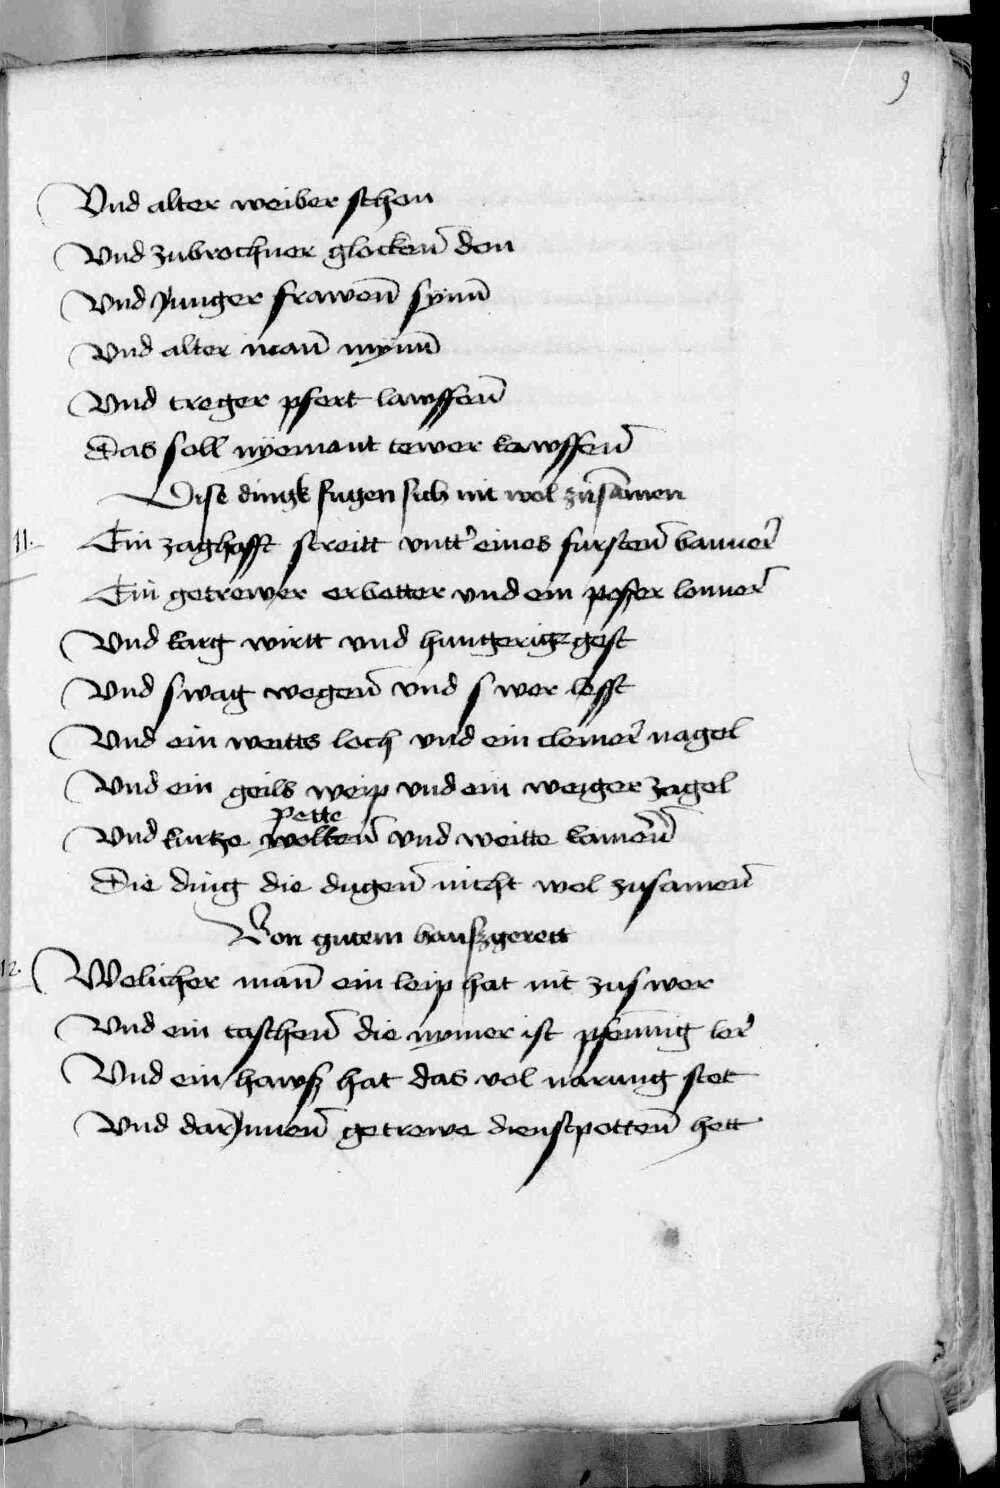 9
Vnd alter weiber schon
Vnd zubrochner glocken̄ don
Vnd Junger frawen̄ synn̄
Vnd alter man̄ mynn̄
Vnd treger pfert lawffen̄
Das soll nyemant tewer kawffen̄
Dise dingk fugen sich nit wol zusāmen
11. Ein zaghafft streitt vntt' eines fursten̄ banner'
Ein getrewer erbetter vnd ein poser loner'
Vnd karg wirtt vnd hungerig gest
Vnd swag wegen̄ vnd swer lesst
Vnd ein weitts loch vnd ein cleiner' nagel
Vnd ein geils weip vnd ein weiger zagel
Pette
Vnd kurtze wolken̄ vnd weitte kamern̄
Die ding die dugen̄ nicht wol zusamen̄
Von gutem hauszgerett
12. Welicher man̄ ein leip hat nit zuswer
Vnd ein taschen̄ die nymer ist pfennig ler'
Vnd ein hawsz hat das vol narung stet
Vnd dar Jnnen̄ getrewe dienstpotten̄ hett